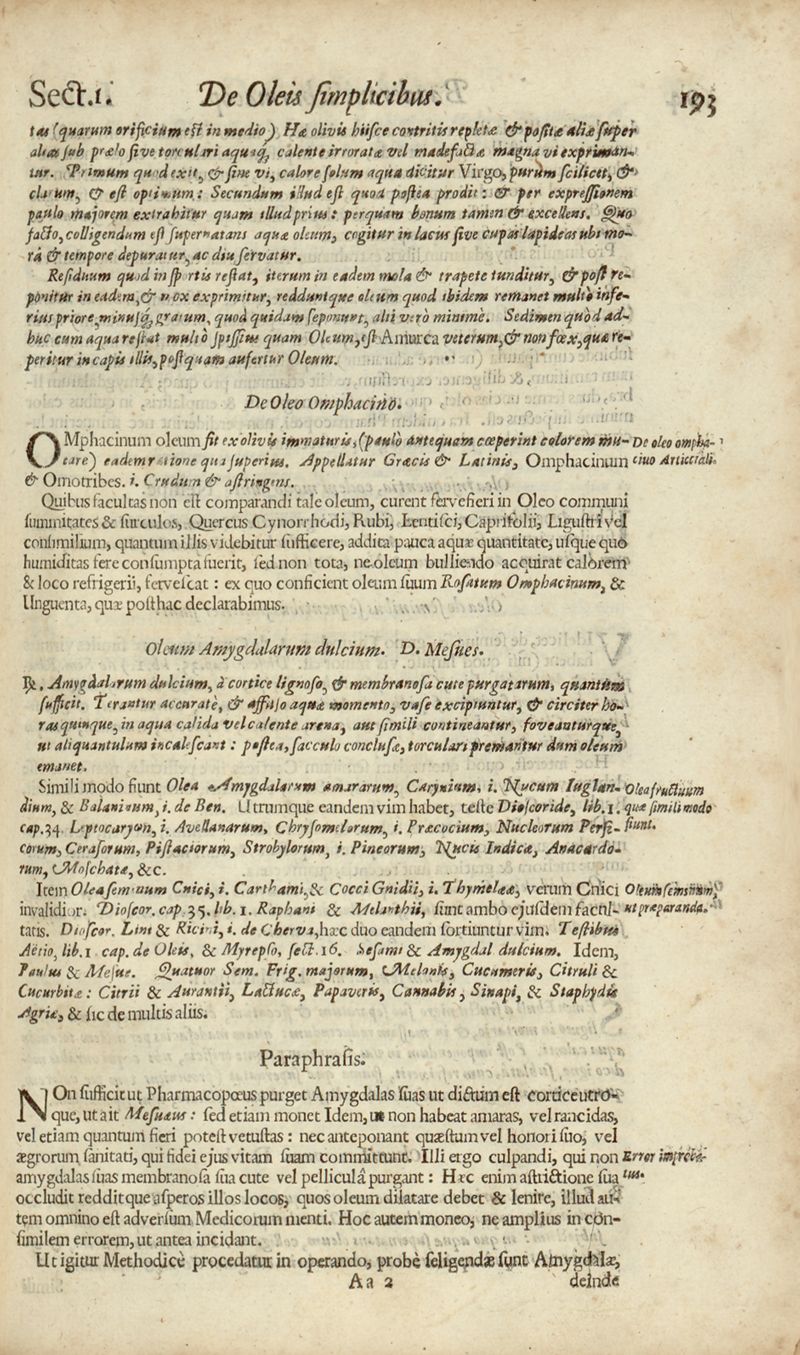 Sect.1. De Oleis simplicibus. 193
tas (quarum orificium est in medio) Hæ olivis hiisce contritis repletæ & positæ aliæ super
alias sub prælo sive torculari aquaq; calente irroratæ vel madefactæ magna vi expriman-
tur. Primum quod exit, & sine vi, calore solum aqua dicitur Virgo, purum scilicet, &
clarum, & est optimum: Secundum illud est quod postea prodit: & per expressionem
paulo majorem extrahitur quam illud prius: perquam bonum tamen & excellens. Quo
facto, colligendum est supernatans aquæ oleum, cogitur in lacus sive cupas lapideas ubi mo-
ra & tempore depuratur, ac diu servatur.
Residuum quod in sportis restat, iterum in eadem mola & trapete tunditur, & post re-
ponitur in eadem, & mox exprimitur, redduntque oleum quod ibidem remanet multo infe-
rius priore, minusq; gratum, quod quidam seponunt, alii vero minime. Sedimen quod ad-
huc cum aqua restat multo spissius quam Oleum, est Amurca veterum, & non fœx, quæ re-
peritur in capis illis, postquam aufertur Oleum.
De Oleo Omphacino.
OMphacinum oleum fit ex olivis immaturis, (paulo antequam cœperint colorem mu- De oleo ompha-
tare) eadem ratione qua superius. Appellatur Græcis & Latinis, Omphacinum cino Articulali.
& Omotribes. i. Crudum & astringens.
Quibus facultas non est comparandi tale oleum, curent fervefieri in Oleo communi
summitates & surculos, Quercus Cynorrhodi, Rubi, Lentisci, Caprifolii, Ligustri vel
consimilium, quantum illis videbitur sufficere, addita pauca aquæ quantitate, usque quo
humiditas fere consumpta fuerit, sed non tota, ne oleum bulliendo acquirat calorem
& loco refrigerii, fervescat: ex quo conficient oleum suum Rosatum Omphacinum, &
Unguenta, quæ posthac declarabimus.
Oleum Amygdalarum dulcium. D. Mesues.
℞. Amygdalarum dulcium, à cortice lignoso, & membranosa cute purgatarum, quantum
sufficit. Terantur accurate, & affuso aquæ momento, vase excipiuntur, & circiter ho-
ras quinque, in aqua calida vel calente arena, aut simili contineantur, foveanturque,
ut aliquantulum incalescant: postea, sacculo conclusæ, torculari premantur dum oleum
emanet.
Simili modo fiunt Olea Amygdalarum amararum, Caryinum, i. Nucum Iuglan- Olea fructuum
dium, & Balaninum, i. de Ben. Utrumque eandem vim habet, teste Dioscoride, lib. 1. quæ simili modo
cap.34. Leptocaryon, i. Avellanarum, Chrysomelorum, i. Præcocium, Nucleorum Persi- fiunt.
corum, Cerasorum, Pistaciorum, Strobylorum, i. Pineorum, Nucis Indicæ, Anacardo-
rum, Moschatæ, &c.
Item Olea seminum Cnici, i. Carthami, & Cocci Gnidii, i. Thymelææ, verum Cnici Oleum seminum,
invalidior. Dioscor. cap. 35. lib. 1. Raphani & Melanthii, sunt ambo ejusdem facul- ut præparanda.
tatis. Dioscor. Lini & Ricini, i. de Cherva, hæc duo eandem sortiuntur vim. Testibus
Aëtio, lib.1 cap. de Oleis, & Myrepso, sect. 16. Sesami & Amygdal dulcium. Idem,
Paulus & Mesue. Quatuor Sem. Frig. majorum, Melonis, Cucumeris, Citruli &
Cucurbitæ: Citrii & Aurantii, Lactucæ, Papaveris, Cannabis, Sinapi, & Staphydis
Agriæ, & sic de multis aliis.
Paraphrasis.
NOn sufficit ut Pharmacopœus purget Amygdalas suas ut dictum est cortice utro-
que, ut ait Mesuæus: sed etiam monet Idem, ut non habeat amaras, vel rancidas,
vel etiam quantum fieri potest vetustas: nec anteponant quæstum vel honori suo, vel
ægrorum sanitati, qui fidei ejus vitam suam committunt. Illi ergo culpandi, qui non Error
amygdalas suas membranosa sua cute vel pelliculâ purgant: Hæc enim astrictione sua
occludit redditque asperos illos locos, quos oleum dilatare debet & lenire, illud au-
tem omnino est adversum Medicorum menti. Hoc autem moneo, ne amplius in con-
similem errorem, ut antea incidant.
Ut igitur Methodice procedatur in operando, probè seligendæ sunt Amygdalæ,
Aa 2 deinde